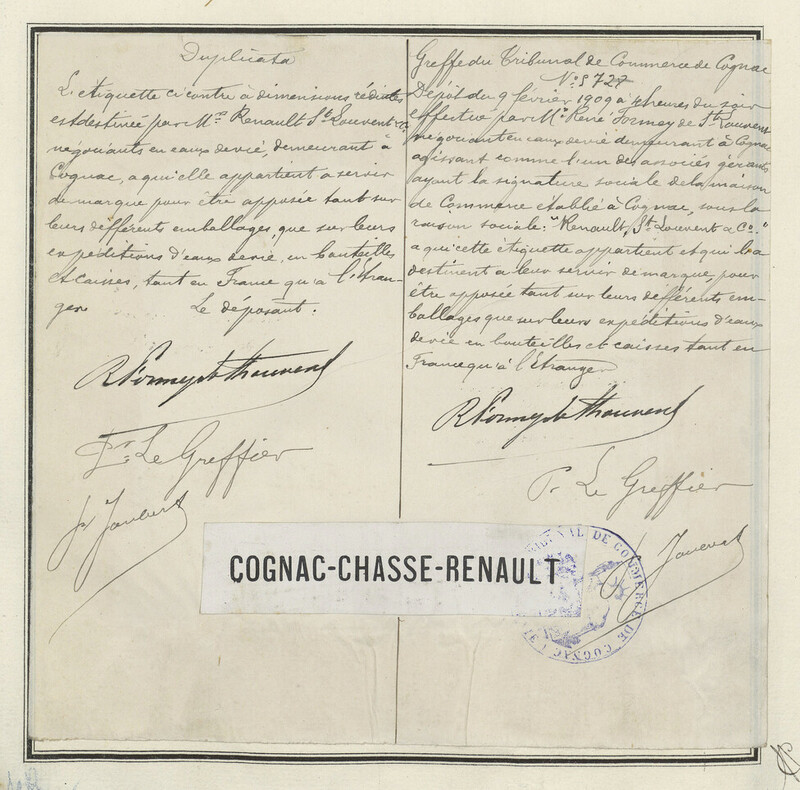 Duplicata
L'étiquette ci contre à dimensions réduites
est destinée par Mrs Renault St Louvent & Co
négociants en eaux devie, demeurant à
Cognac, a qui elle appartient a servir
de marque pour être apposée tant sur
leurs différents emballages, que sur leurs
expéditions d'eaux devie, en bouteilles
et caisses, tant en France qu'à l'étran-
ger. Le déposant.
Pr Le Greffier
Greffe du Tribunal de Commerce de Cognac
No 5727
Dépôt du 9 février 1909 à heures du soir
effectué par Mr René Formey de St Louvent
négociant en eaux devie demeurant à Cognac
agissant comme l'un des associés gérants
ayant la signature sociale de la maison
de Commerce établie à Cognac, sous la
raison sociale: "Renault, St Louvent & Co."
a qui cette étiquette appartient et qui la
destinent a leur servir de marque, pour
être apposée tant sur leurs différents em-
ballages que sur leurs expéditions d'eaux
devie en bouteilles et caisses tant en
France qu'à l'Etranger
P. Le Greffier
COGNAC-CHASSE-RENAULT
TRIBUNAL DE COMMERCE DE COGNAC